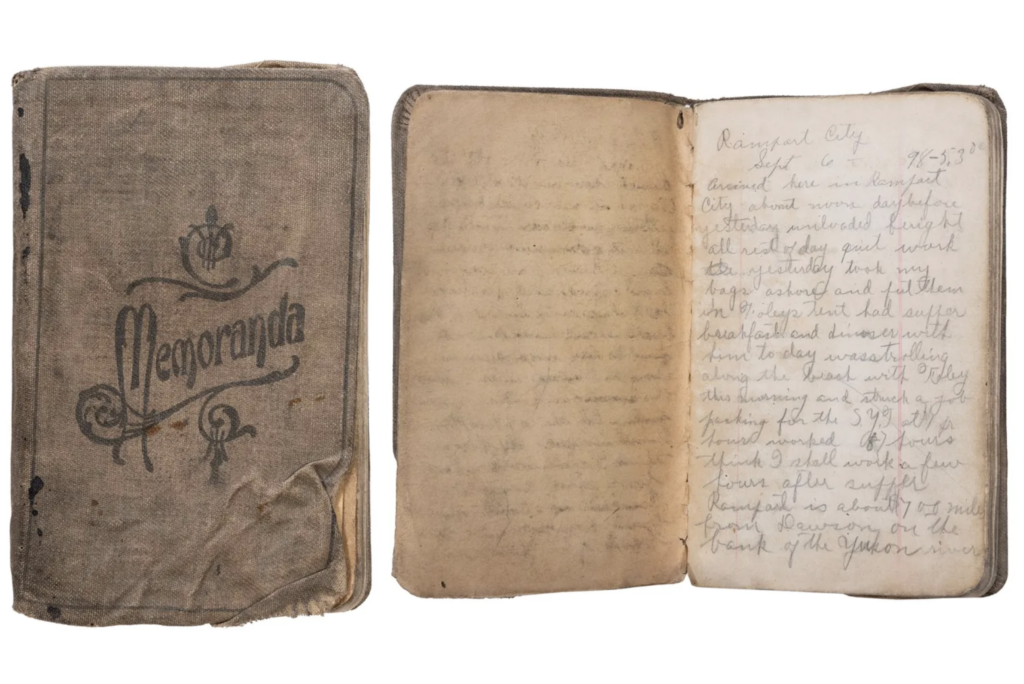 Memoranda
Rampart City
Sept 6 98 - 5.30
Arrived here in Rampart
City about noon day before
yesterday unloaded freight
all rest of day quit work
yesterday took my
bags ashore and put them
in Foleys tent had supper
breakfast and dinner with
him to day was strolling
along the beach with Foley
this morning and struck a job
packing for the S Y T at
hours worked 7 hours
think I shall work a few
hours after supper
Rampart is about 700 mile
from Dawson on the
bank of the Yukon river